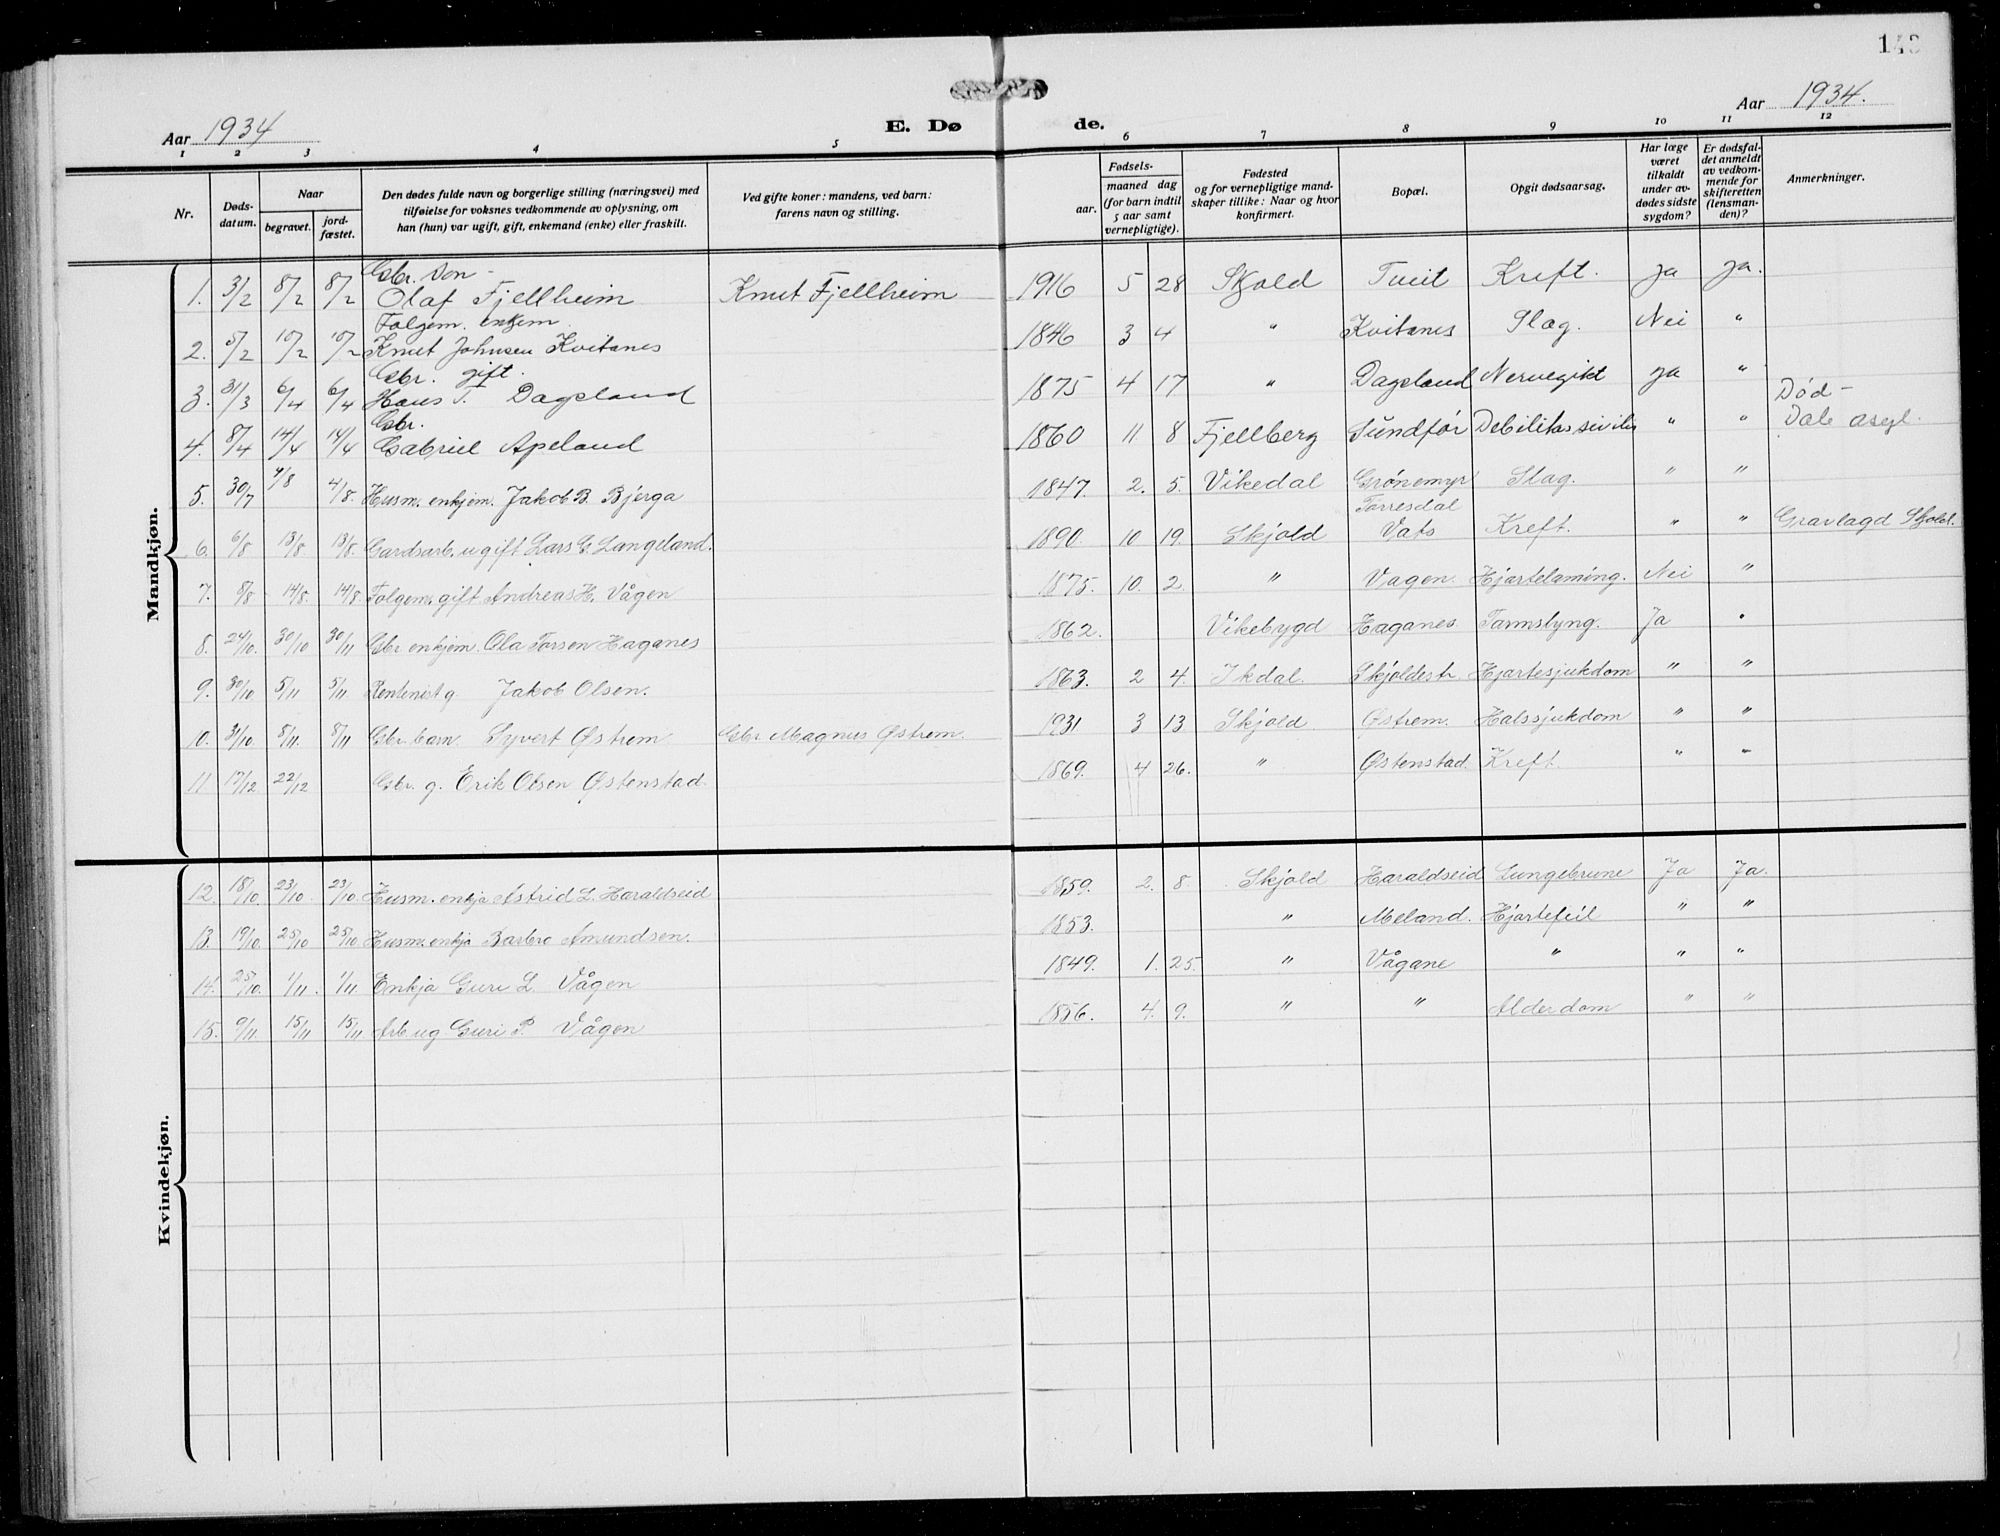 143
Aar 1934 E. Døde. Aar 1934.
1 2 3 4 5 6 7 8 9 10 11 12
Nr. Døds-datum. Naar begravet. jord-fæstet. Den dødes fulde navn og borgerlige stilling (næringsvei) med tilføielse for voksnes vedkommende av oplysning, om han (hun) var ugift, gift, enkemand (enke) eller fraskilt. Ved gifte koner: mandens, ved barn: farens navn og stilling. Fødsels- aar. maaned dag (for barn indtil 5 aar samt vernepligtige). Fødested og for vernepligtige mand-skaper tillike: Naar og hvor konfirmert. Bopæl. Opgit dødsaarsag. Har læge været tilkaldt under av-dødes sidste sygdom? Er dødsfal-det anmeldt av vedkom-mende for skifteretten (lensman-den)? Anmerkninger.
Mandkjøn.
1. 3/2 8/2 8/2 Gbr. søn - Olaf Fjellheim Knut Fjellheim 1916 5 28 Skjold Tveit Kreft. ja ja.
2. 5/2 10/2 10/2 Folgem. enkem. Knut Johnsen Kvitanes 1846 3 4 " Kvitanes Slag. Nei "
3. 31/3 6/4 6/4 Gbr. gift. Hans T. Dagsland 1875 4 17 " Dagsland Nervegikt ja "
4. 8/4 14/4 14/4 Gbr. Gabriel Apeland 1860 11 8 Fjellberg Sundfør Debilitas sivilis " " Død - Dale asyl.
5. 30/7 4/8 4/8. Husm. enkjem. Jakob B. Bjerga 1847. 2. 5. Vikedal Grönemyr Slag. " "
6. 6/8 13/8 13/8. Gardsarb. ugift Lars G. Langeland. 1890. 10 19. Skjold Torresdal Vats Kreft. " " Gravlagd Skjold.
7. 8/8 14/8. 14/8. Folgem. gift Andreas H. Vågen 1875. 10. 2. " Vagen. Hjartelaming. Nei "
8. 24/10. 30/10 30/11 Gbr. enkjem. Ola Torsen Haganes 1862. Vikebygd Haganes. Tarmslyng. Ja "
9. 30/10 5/11 5/11 Rentenist g. Jakob Olsen. 1863. 2 4. Ikdal. Skjoldestr. Hjartesjukdom " "
10. 31/10. 8/11. 8/11 Gbr. barn Syvert Østrem Gbr. Magnus Østrem. 1931 3 13 Skjold Østrem. Halssjukdom " "
11 17/12. 22/12 Gbr. g. Erik Olsen Østenstad. 1869. 4 26. " Østenstad. Kreft. " "
Kvindekjøn.
12. 18/10. 23/10. 23/10. Husm. enkja Astrid L. Haraldseid 1859. 2. 8. Skjold Haraldseid Lungebrune Ja Ja.
13. 19/10. 25/10 25/10. Husm. enkja Barbro Amundsen. 1853. " Meland. Hjartefeil " "
14. 25/10. 1/11. 1/11. Enkja Guri L. Vågen 1849. 1. 25. " Vågane " " "
15. 9/11. 15/11 15/11 Arb. ug Guri P. Vågen 1856. 4. 9. " " Alderdom " "